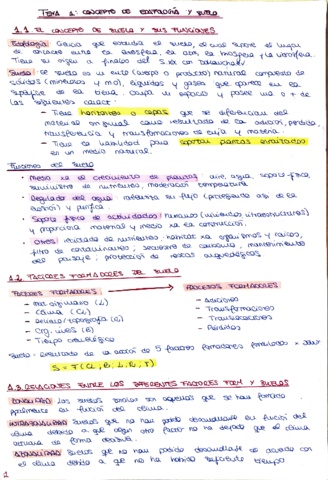 TEMA 1: CONCEPTO DE EDAFOLOGÍA Y SUELO
1.1. EL CONCEPTO DE SUELO Y SUS FUNCIONES
Edafología: Ciencia que estudia el suelo, el cual supone el lugar
de encuentro entre la litosfera, el aire, la biosfera y la hidrosfera.
Tuvo su origen a finales del S.XIX con Dokuchaev.
Suelo: el suelo es un ente (cuerpo o producto) natural compuesto de
sólidos (minerales y MO), líquidos y gases que aparece en la
superficie de la tierra, ocupa un espacio y posee una o + de
las siguientes caract:
- Tiene horizontes o capas que se diferencian del
material original como resultado de las adiciones, pérdidas,
transferencias y transformaciones de energía y materia.
- Tiene la habilidad para soportar plantas enraizadas
en un medio natural.
Funciones del suelo
- Medio xa el crecimiento de plantas: aire, agua, soporte físico,
suministro de nutrientes, moderación temperatura
- Regulador del agua: ralentiza su flujo (protegiendo así de la
erosión) y purifica
- Soporte físico de actividades humanas (viviendas, infraestructuras)
y proporciona material y medio xa la construcción.
- Otros: reciclado de nutrientes, hábitat xa organismos y raíces,
filtro de contaminantes, secuestro de carbono, mantenimiento
del paisaje, protección de restos arqueológicos
1.2. FACTORES FORMADORES DEL SUELO
FACTORES FORMADORES → PROCESOS FORMADORES
- Mat. originario (L) - Adiciones
- Clima (CL) - Transformaciones
- Relieve/topografía (R) - Translocaciones
- Org. vivos (B) - Pérdidas
- Tiempo cronológico
Suelo = resultado de la acción de 5 factores formadores
S = f (CL, B, L, R, T)
1.3. RELACIONES ENTRE LOS DIFERENTES FACTORES FORM. Y SUELOS
ZONALIDAD Los suelos zonales son aquellos que se han formado
principalmente en función del clima.
INTRAZONALIDAD Suelos que no han podido desarrollarse en función del
clima debido a que algún otro factor no ha dejado que el clima
actuara de forma decisiva.
AZONALIDAD Suelos que no han podido desarrollarse de acuerdo con
el clima debido a que no ha habido suficiente tiempo
1